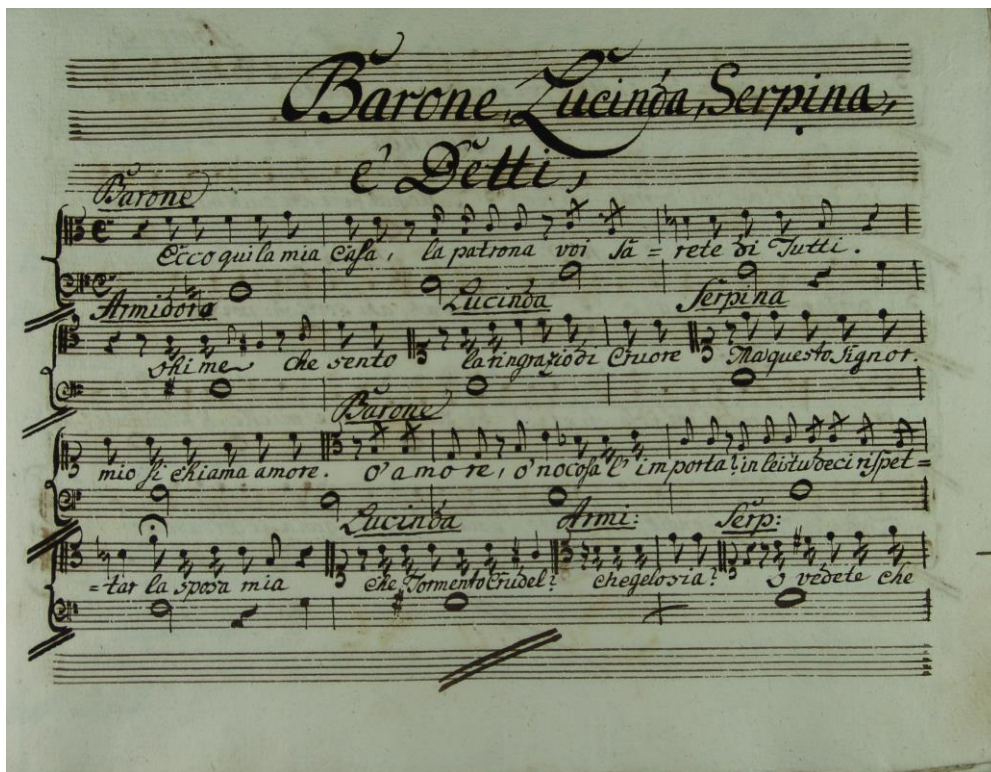 Barone, Lucinda, Serpina,
e' Detti,
Barone
Ecco qui la mia Casa, la patrona voi sa = rete di Tutti.
Armidoro Lucinda Serpina
ohime che sento la ringrazio di Cuore Ma questo Signor.
Barone
mio si chiama amore. o' amore, o' no cosa l'importa? in lei tu deci rispet=
Lucinda Armi: Serp:
=tar la sposa mia che Tormento Crudel? che gelosia? o vedete che